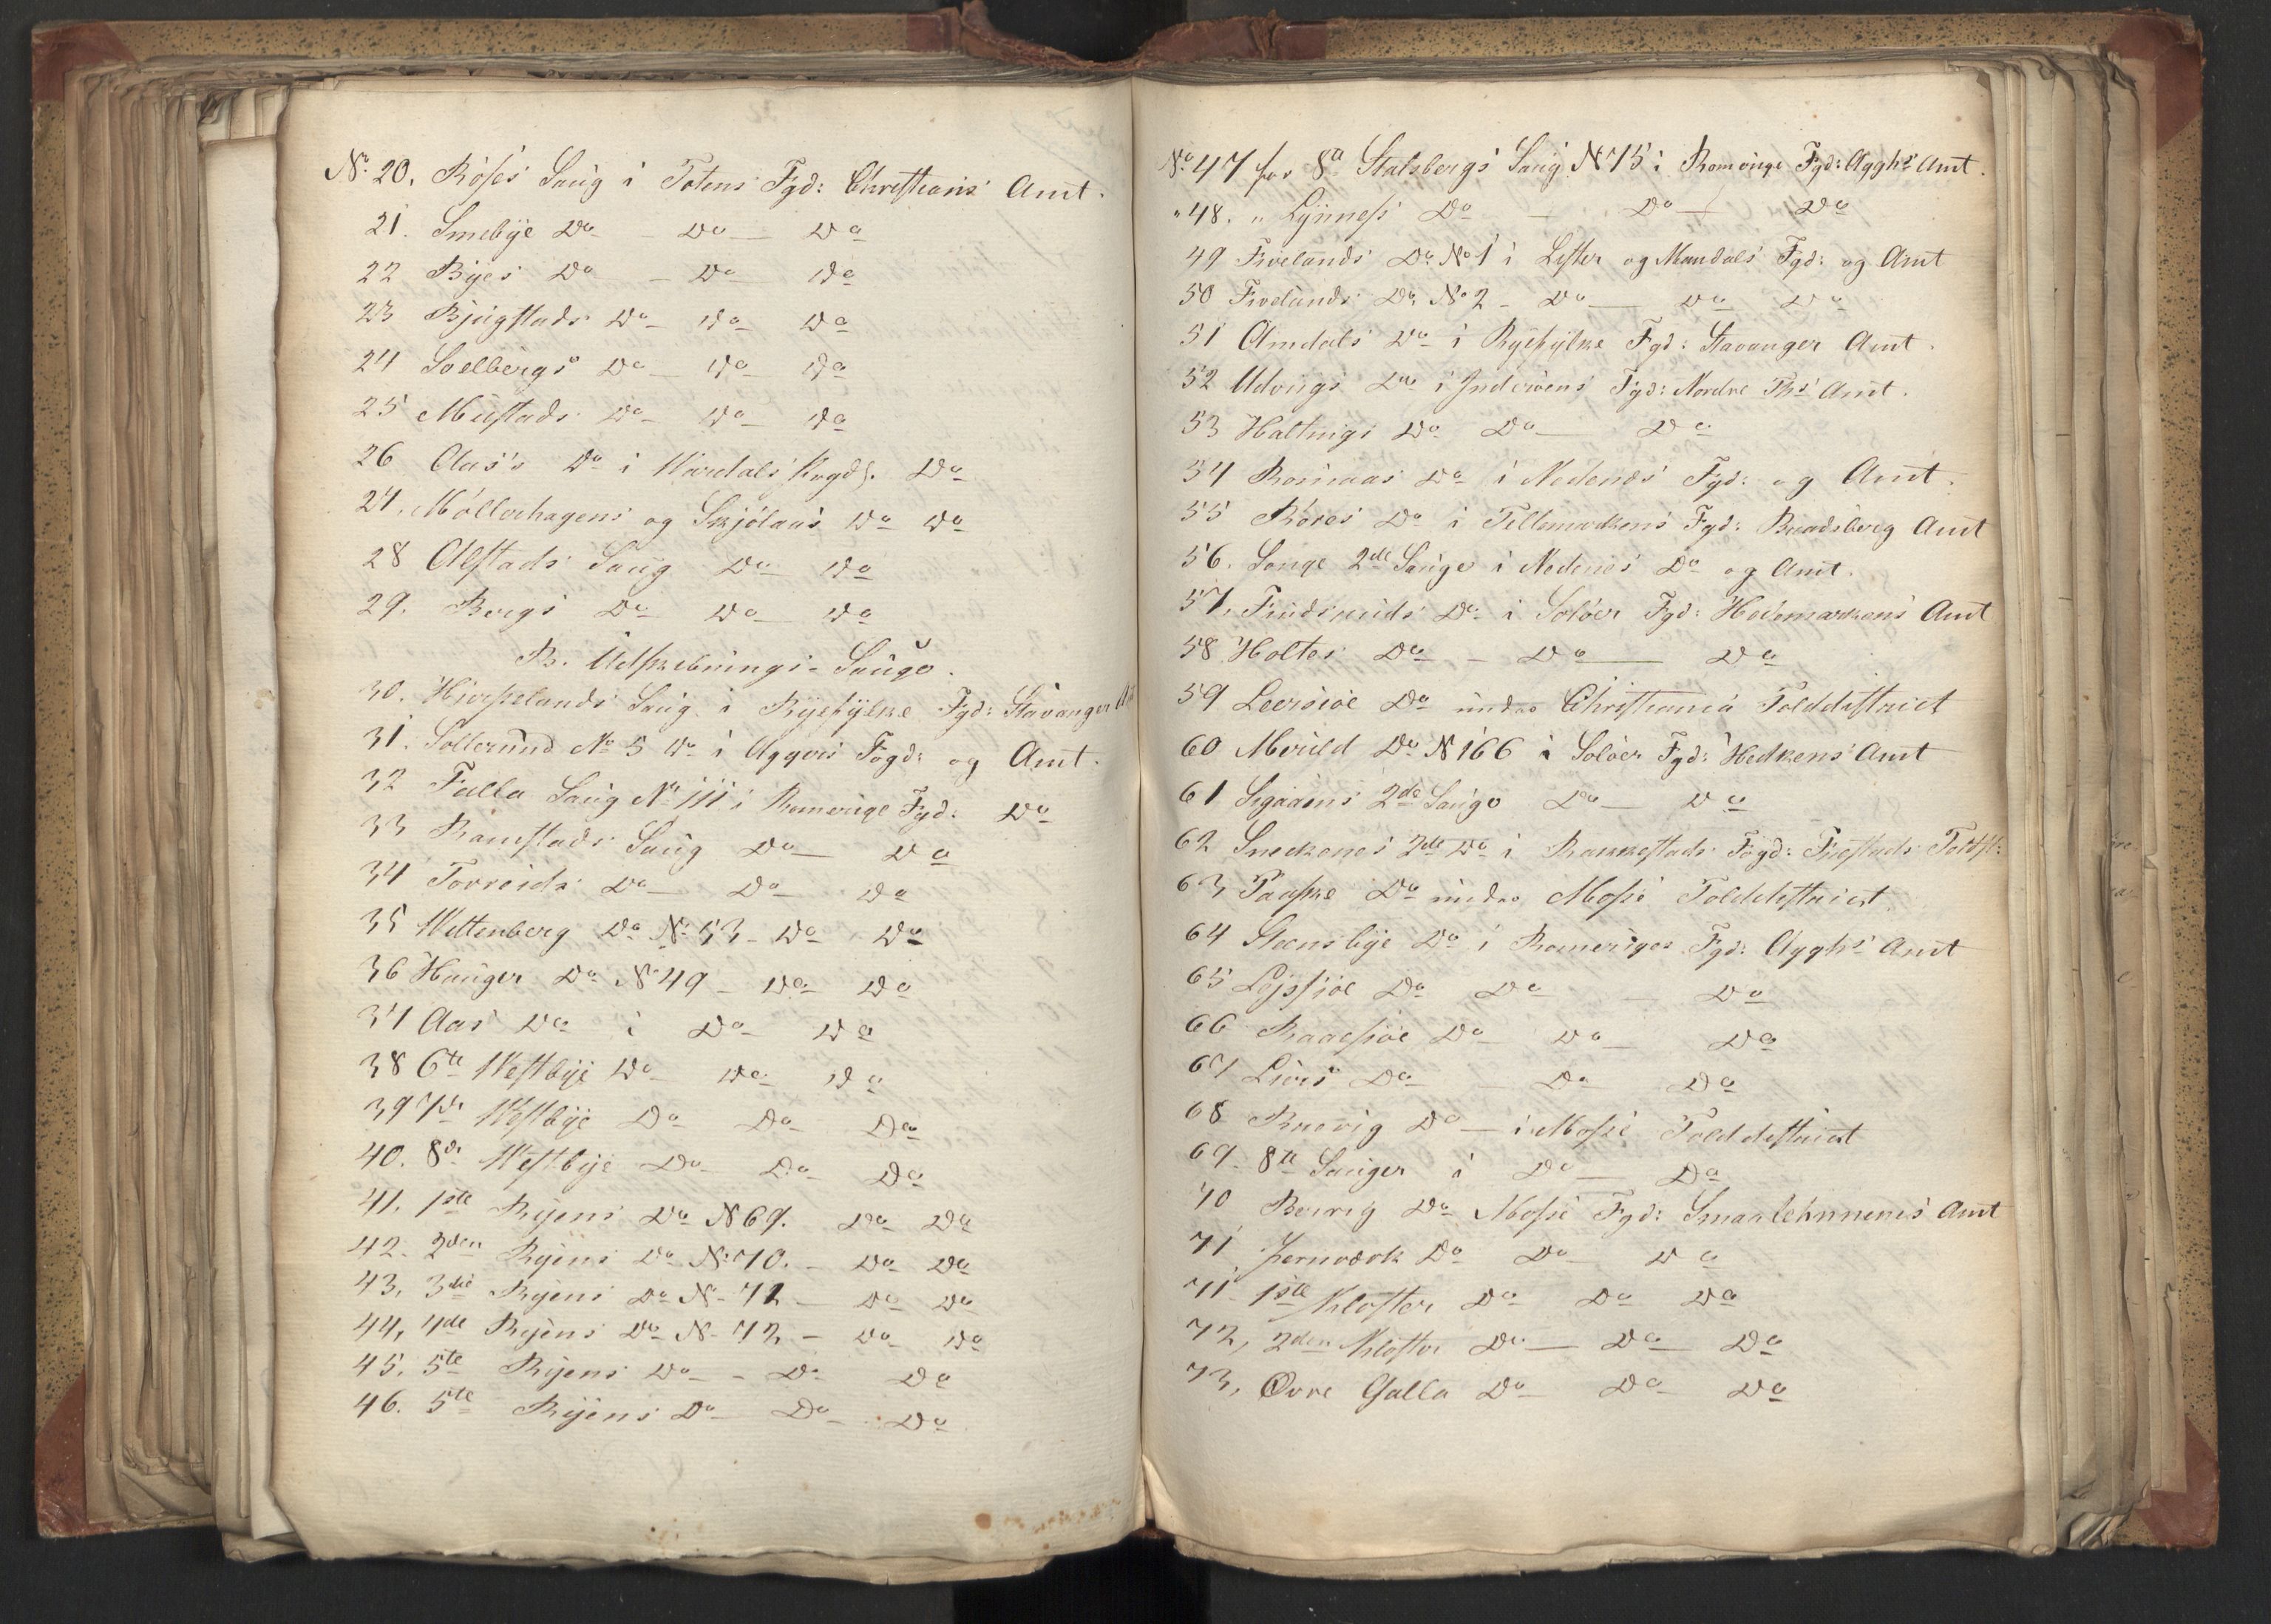 No 20. Röses Saug i Totens Fgd: Christians Amt.
21. Smebye Do - Do - Do
22 Byes Do - Do Do
23 Bjugstads Do - Do - Do
24 Soelbergs Do - Do - Do
25 Mustads Do - Do - Do
26 Aas's Do i Wardals Prgds. Do
27. Möllerhagens og Skjölaas Do Do
28 Alstads Saug Do - Do
29. Bergs Do Do - Do
B. Udskibnings-Sauge.
30. Hjorselands Saug i Ryefylke Fgd: Stavanger
31. Sollerund No 5 Do i Aggers Fogd: og Amt.
32 Falla Saug No 111 i Romerige Fgd: Do
33 Ramstads Saug Do - Do
34 Torreids Do - Do - Do
35 Wittenberg Do No 53 - Do Do
36 Hauger Do No 49 - Do Do
37 Aas Do i Do - Do
38 6te Westbye Do - Do - Do
39 7de Westbye Do Do - Do
40. 8de Westbye Do - Do - Do
41. 1ste Ryens Do N 69. Do Do
42. 2den Ryens Do No 70. - Do Do
43. 3die Ryens Do No 71 - Do Do
44, 4de Ryens Do No 72 - Do Do
45. 5te Ryens Do - - Do Do
46. 5te Ryens Do - Do - Do
No 47 for 8de Stalsbergs Saug N 75 i Romerige Fgd: Agghs Amt.
" 48. " Lynness Do - Do - Do
49 Fivelands Do No 1 i Lister og Mandals Fgd: og Amt
50 Fivelands Do No 2 - Do - Do Do
51 Omdals Do i Ryefylke Fgd: Stavanger Amt.
52 Udvugs Do i Inderöens Fgd: Nordre Ths Amt.
53 Haltings Do Do - Do
54 Rosinaas Do i Nedenæs Fgd: og Amt.
55 Röres Do i Tellemarkens Fgd: Bradsberg Amt
56. Songe 2de Sauge i Nedenes Do og Amt.
57. Do i Solöer Fgd: Hedemarkens Amt
58 Holtes Do - Do - Do
59 Leersiöe Do under Christiania Tolddistrict
60 Mbruld Do N 166 i Solöer Fgd: Hedkens Amt
61 Sigaaens 2de Sauge Do - Do
62 Sneckenes 2de Do i Rakkestads Fogd: Frestads Tolddt:
63 Paaske Do under Mosse Tolddistrict
64 Steensbye Do i Romeriges Fgd: Agghs Amt
65 Lyssjöe Do Do - - Do
66 Raaesiöe Do Do - Do
67 Liers Do - Do Do
68 Brevig Do - i Mosse Tolddistrict
69 - 8te Sauger i Do - Do
70 Brevig Do Mosse Fgd: Smaalehnnenes Amt
71, Jernværk Do Do - Do
71 - 1ste Kloster Do Do Do
72, 2den Kloster Do - Do - Do
73, Øvre Galla Do - Do - Do